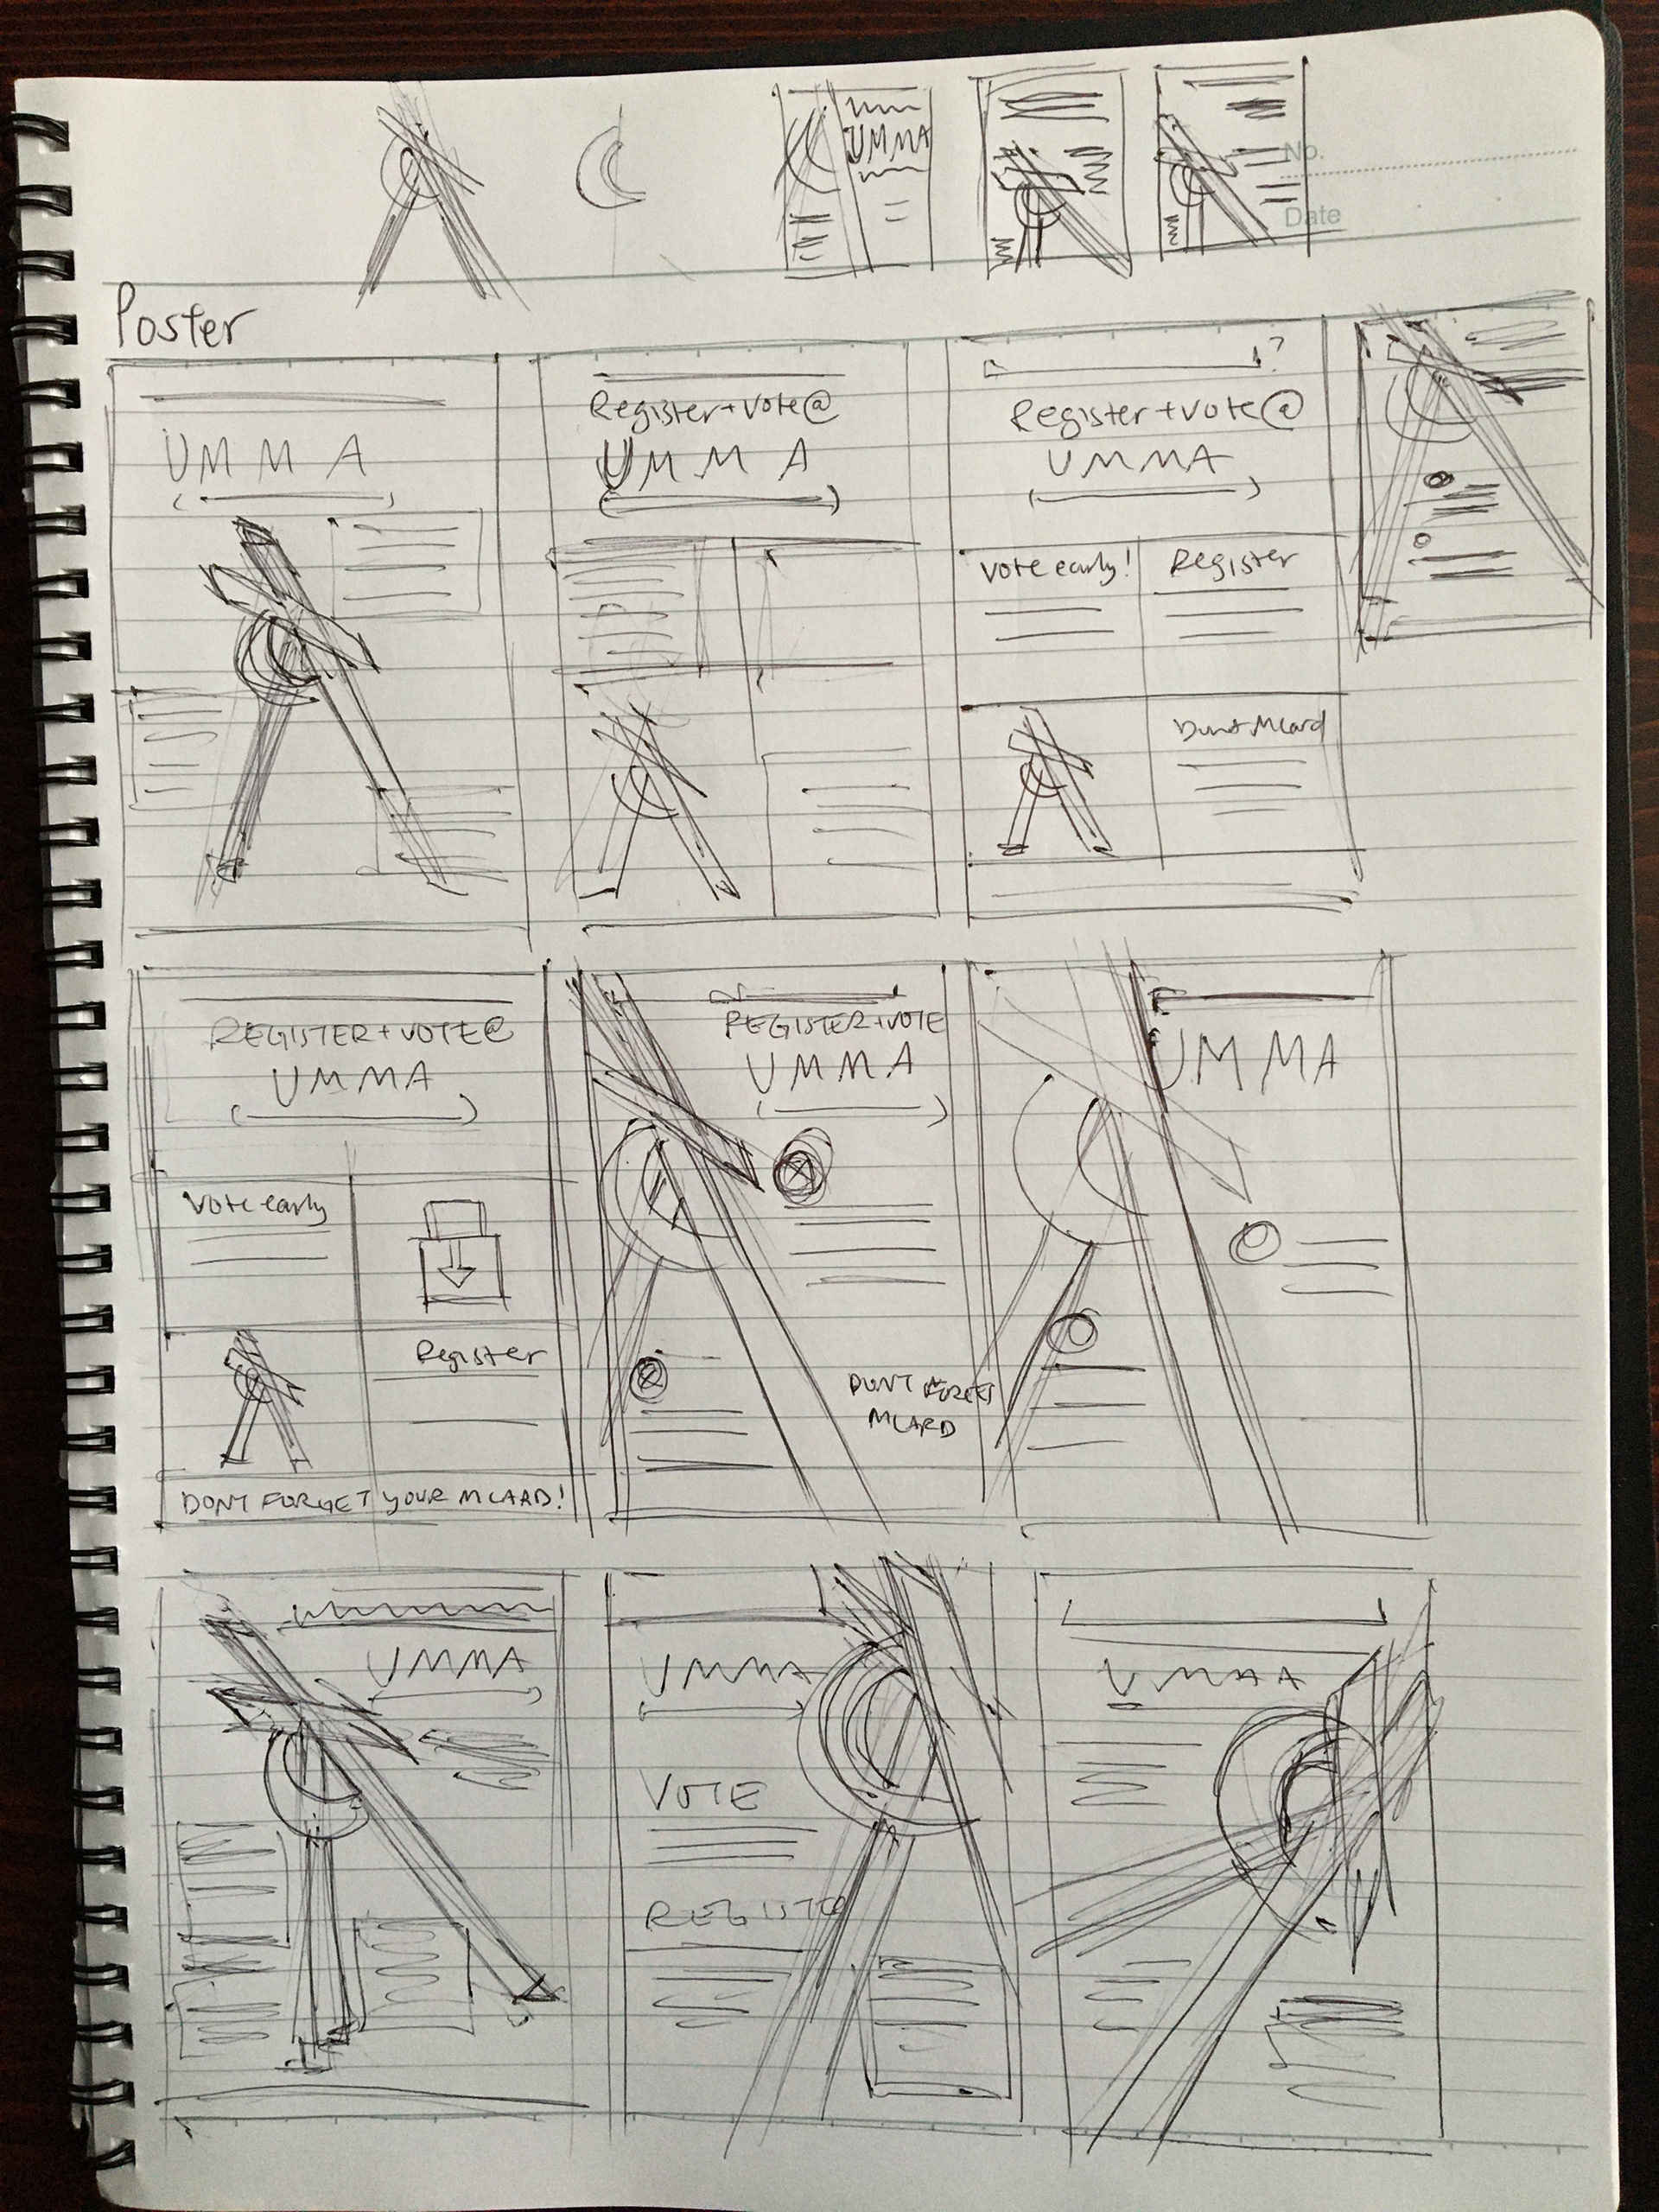 UMMA
No.
Date
Poster
UMMA
Register+vote@
UMMA
?
Register+vote@
UMMA
vote early!
Register
Dont Mcard
REGISTER+VOTE@
UMMA
Vote early
Register
DONT FORGET YOUR MCARD!
REGISTER+VOTE
UMMA
DONT FORGET
MCARD
UMMA
UMMA
UMMA
VOTE
REGISTER
UMMA